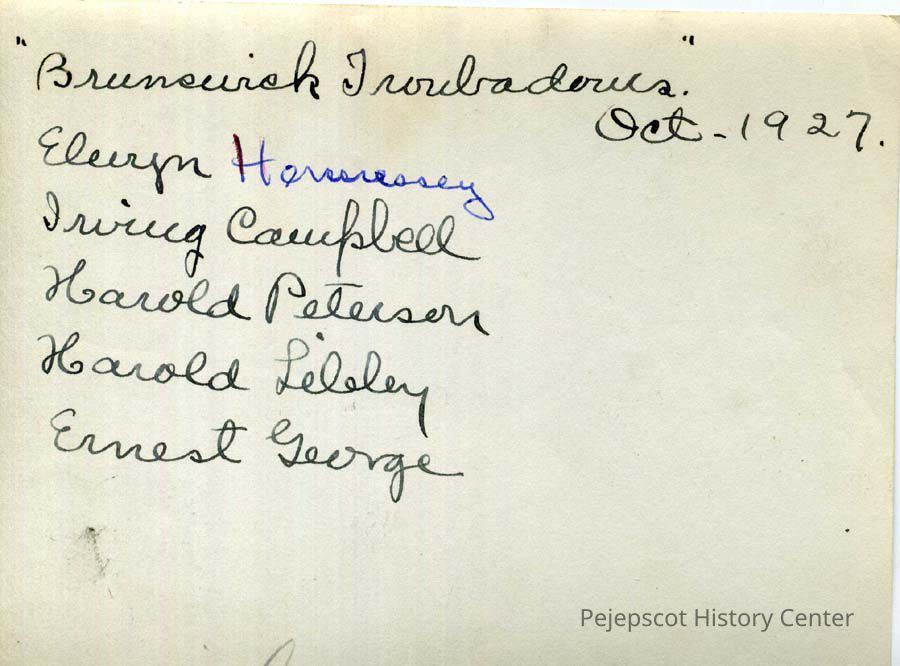 "Brunswick Troubadours."
Oct - 1927.
Elwyn Hennessey
Irving Campbell
Harold Peterson
Harold Libbey
Ernest George
Pejepscot History Center